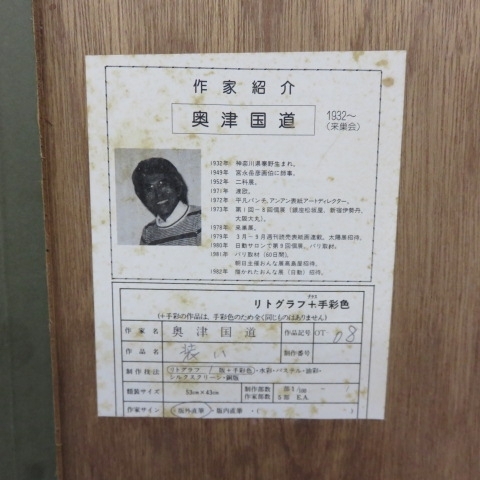 作家紹介
奥津国道
1932〜
(来巣会)
1932年 神奈川県秦野生まれ。
1949年 宮永岳彦画伯に師事。
1952年 二科展。
1971年 渡欧。
1972年 平凡パンチ、アンアン表紙アートディレクター。
1973年 第1回〜8回個展(銀座松坂屋、新宿伊勢丹、
大阪大丸)。
1978年 来巣展。
1979年 3月〜9月週刊読売表紙画連載。太陽展招待。
1980年 日動サロンで第9回個展。パリ取材。
1981年 パリ取材(60日間)。
朝日主催おんな展髙島屋招待。
1982年 描かれたおんな展(日動)招待。
リトグラフ+手彩色
(+手彩の作品は、手彩色のため全く同じものはありません)
作家名 奥津国道 作品記号 OT- 08
作品名 装い 制作番号
制作技法 リトグラフ 版+手彩色・水彩・パステル・油彩・
シルクスクリーン・銅版
額装サイズ 53cm×43cm 制作部数 部 1/100
作家部数 5部 E.A.
作家サイン 版外直筆・版内直筆・(